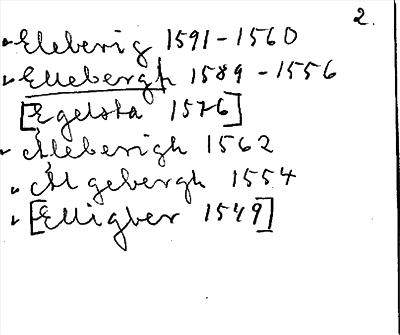 2.
Eleberig 1591-1560
Ellebergh 1589-1556
[Egelsta 1576]
Ålleberigh 1562
Ålgebergh 1554
[Elligber 1549]